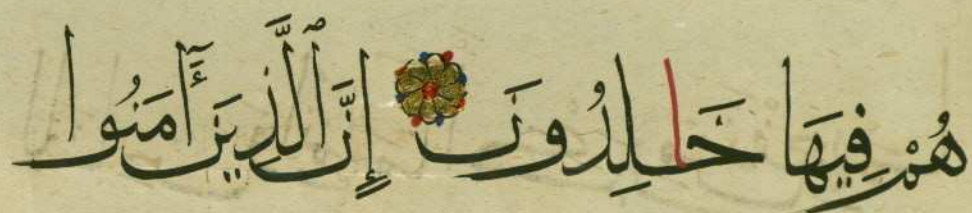 هُمْ فِيهَا خَـٰلِدُونَ إِنَّ ٱلَّذِينَ ءَامَنُوا